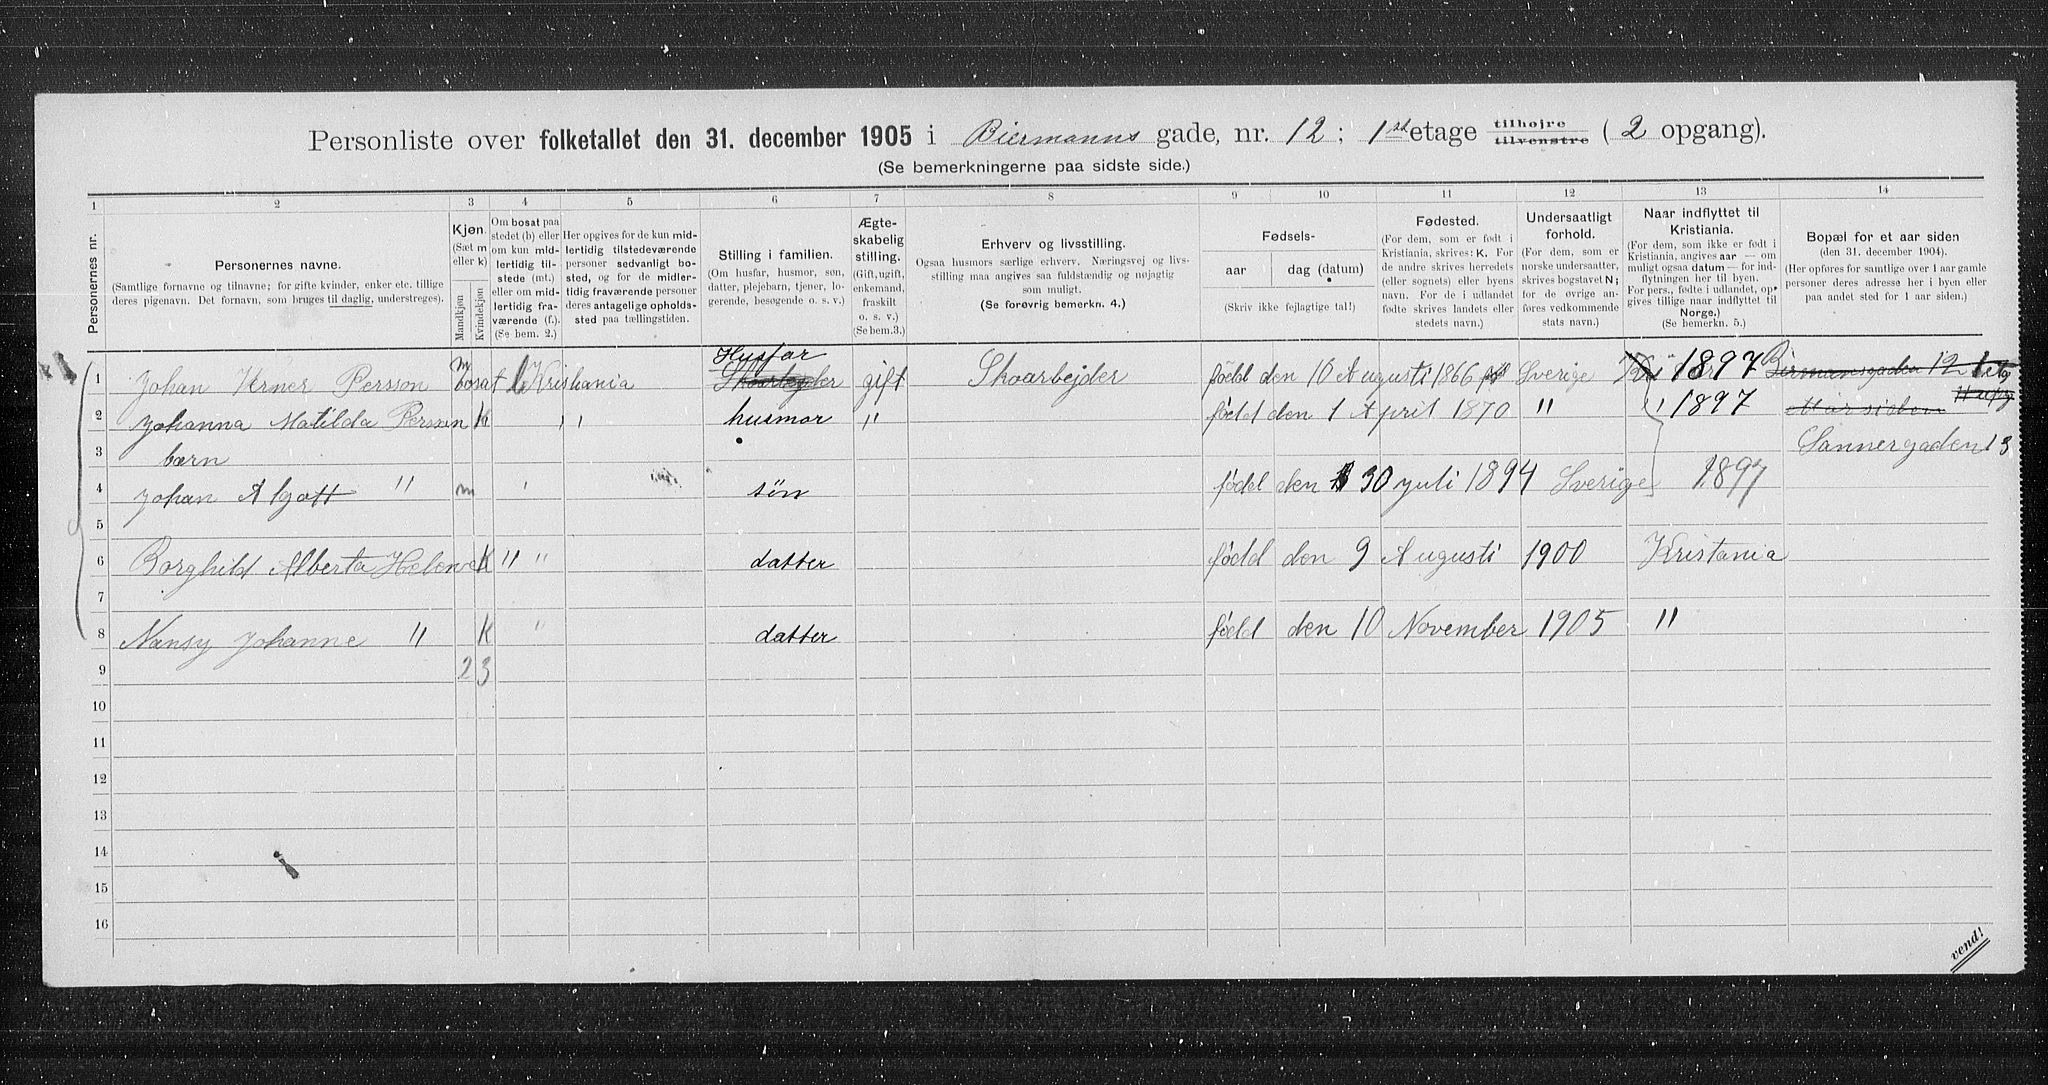 Personliste over folketallet den 31. december 1905 i Biermanns gade, nr. 12; 1ste etage tilhøjre tilvenstre (2 opgang).
(Se bemerkningerne paa sidste side.)
1 2 3 4 5 6 7 8 9 10 11 12 13 14
Personernes nr.
Personernes navne.
(Samtlige fornavne og tilnavne; for gifte kvinder, enker etc. tillige deres pigenavn. Det fornavn, som bruges til daglig, understreges).
Kjøn.
(Sæt m eller k)
Mandkjøn
Kvindekjøn
Om bosat paa stedet (b) eller om kun midlertidig tilstede (mt.) eller om midlertidig fraværende (f.).
(Se bem. 2.)
Her opgives for de kun midlertidig tilstedeværende personer sedvanligt bosted, og for de midlertidig fraværende personer deres antagelige opholdssted paa tællingstiden.
Stilling i familien.
(Om husfar, husmor, søn, datter, plejebarn, tjener, logerende, besøgende o. s. v.)
Ægteskabelig stilling.
(Gift, ugift, enkemand, fraskilt o. s. v.)
(Se bem. 3.)
Erhverv og livsstilling.
Ogsaa husmors særlige erhverv. Næringsvej og livsstilling maa angives saa fuldstændig og nøjagtig som muligt.
(Se forøvrig bemerkn. 4.)
Fødsels-
aar
dag (datum)
(Skriv ikke fejlagtige tal!)
Fødested.
(For dem, som er født i Kristiania, skrives: K. For de andre skrives herredets (eller sognets) eller byens navn. For de i udlandet fødte skrives landets eller stedets navn.)
Undersaatligt forhold.
(For dem, som er norske undersaatter, skrives bogstavet N; for de øvrige anføres vedkommende stats navn.)
Naar indflyttet til Kristiania.
(For dem, som ikke er født i Kristiania, angives aar — om muligt ogsaa datum — for indflytningen her til byen. For pers., fødte i udlandet, opgives tillige naar indflyttet til Norge.)
(Se bemerkn. 5.)
Bopæl for et aar siden
(den 31. december 1904).
(Her opføres for samtlige over 1 aar gamle personer deres adresse her i byen eller paa andet sted for 1 aar siden.)
1 Johan Verner Persson m bosat b Kristiania Husfar Skoarbejder gift Skoarbejder född den 10 Augusti 1866 Sverige 1897 Birmansgaden 12 1 etg
2 Johanna Matilda Persson K " husmor " född den 1 April 1870 " " 1897
3 barn Sannergaden 13
4 Johan Algott " m " søn född den 30 juli 1894 Sverige 1897
5
6 Borghild Alberta Helene K " " datter född den 9 Augusti 1900 Kristania
7
8 Nansy Johanne " K " datter född den 10 November 1905 "
9 2 3
10
11
12
13
14
15
16
vend!